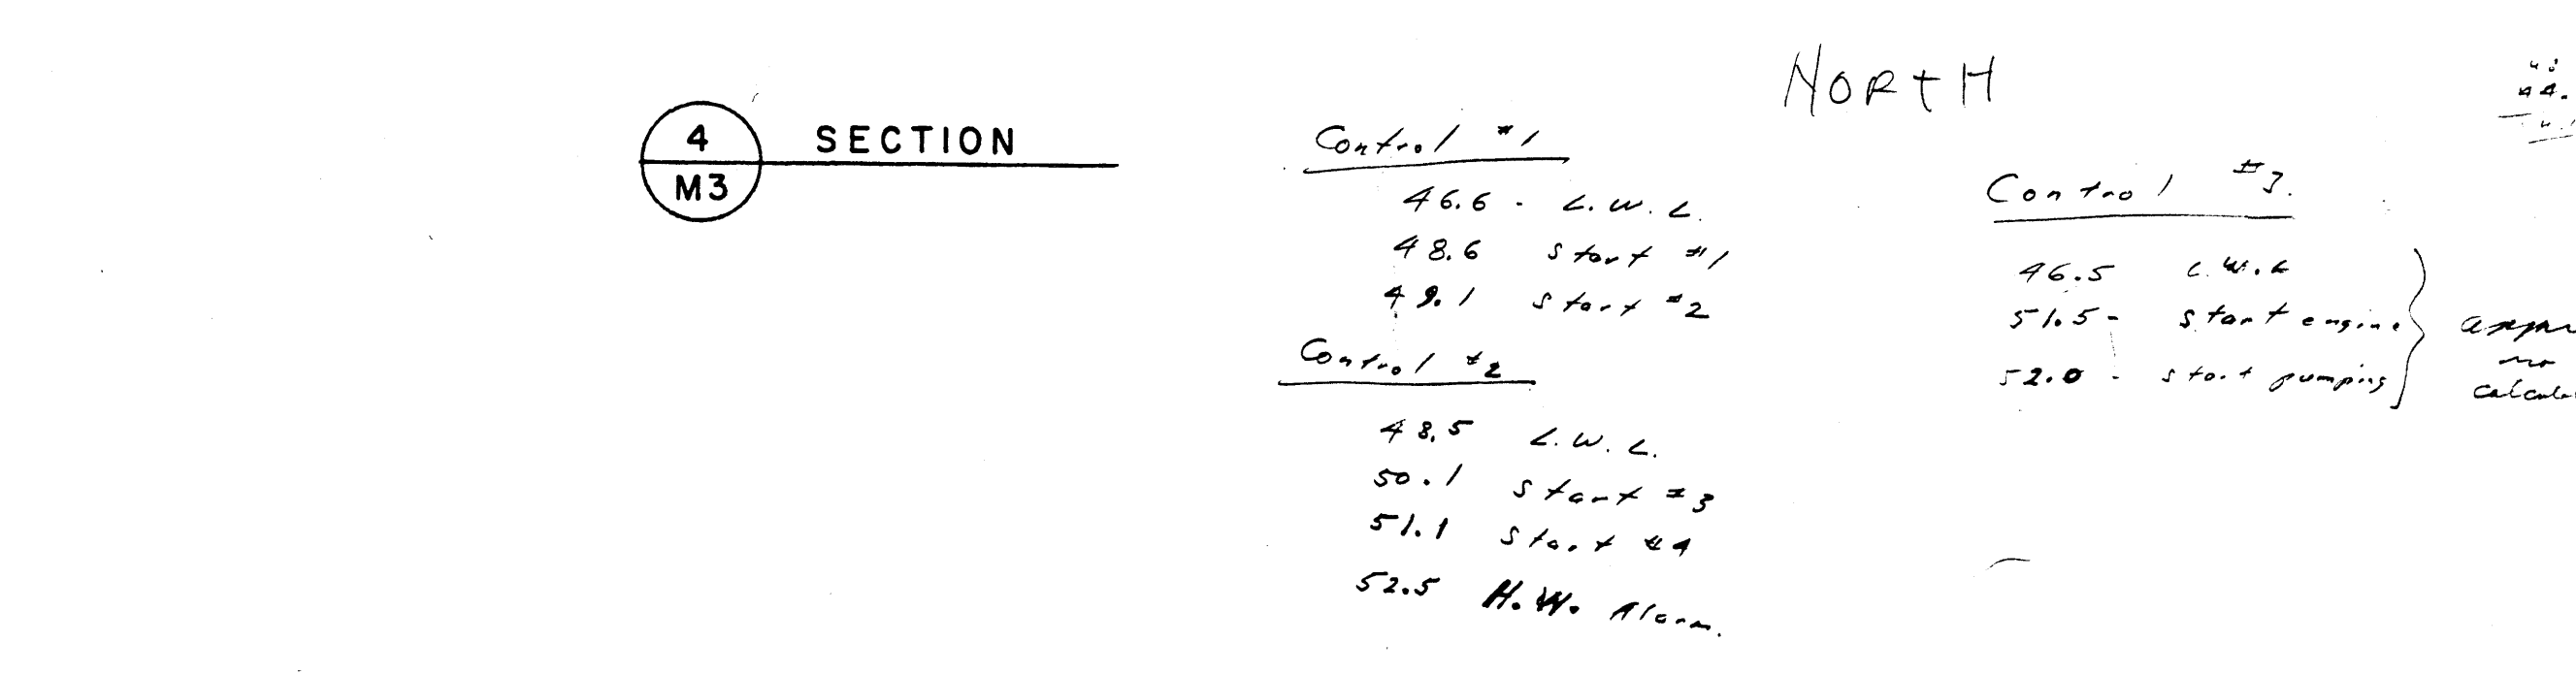 NORTH
4 SECTION
M3
Control #1
46.6 - L.W.L.
48.6 Start #1
49.1 Start #2
Control #2
48.5 L.W.L.
50.1 Start #3
51.1 Start #4
52.5 H.W. Alarm.
Control #3.
46.5 L.W.L
51.5 - Start engine
52.0 - start pumping